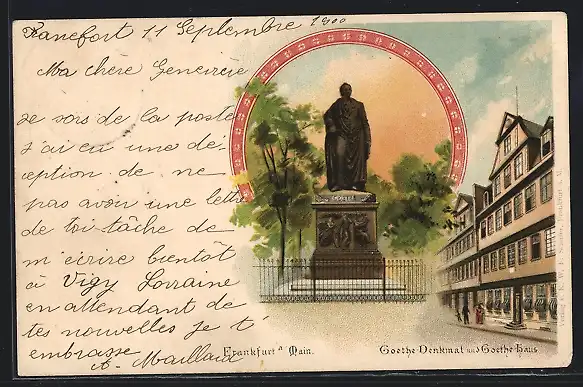 Francfort 11 Septembre 1900
Ma chère Geneviève
je sors de la poste
j'ai eu une dé-
ception de ne
pas avoir une lettre
de toi tâche de
m'écrire bientôt
à Vigy Lorraine
en attendant de
tes nouvelles je t'
embrasse
A. Maillard
GOETHE
Frankfurt a Main.
Goethe-Denkmal und Goethe-Haus